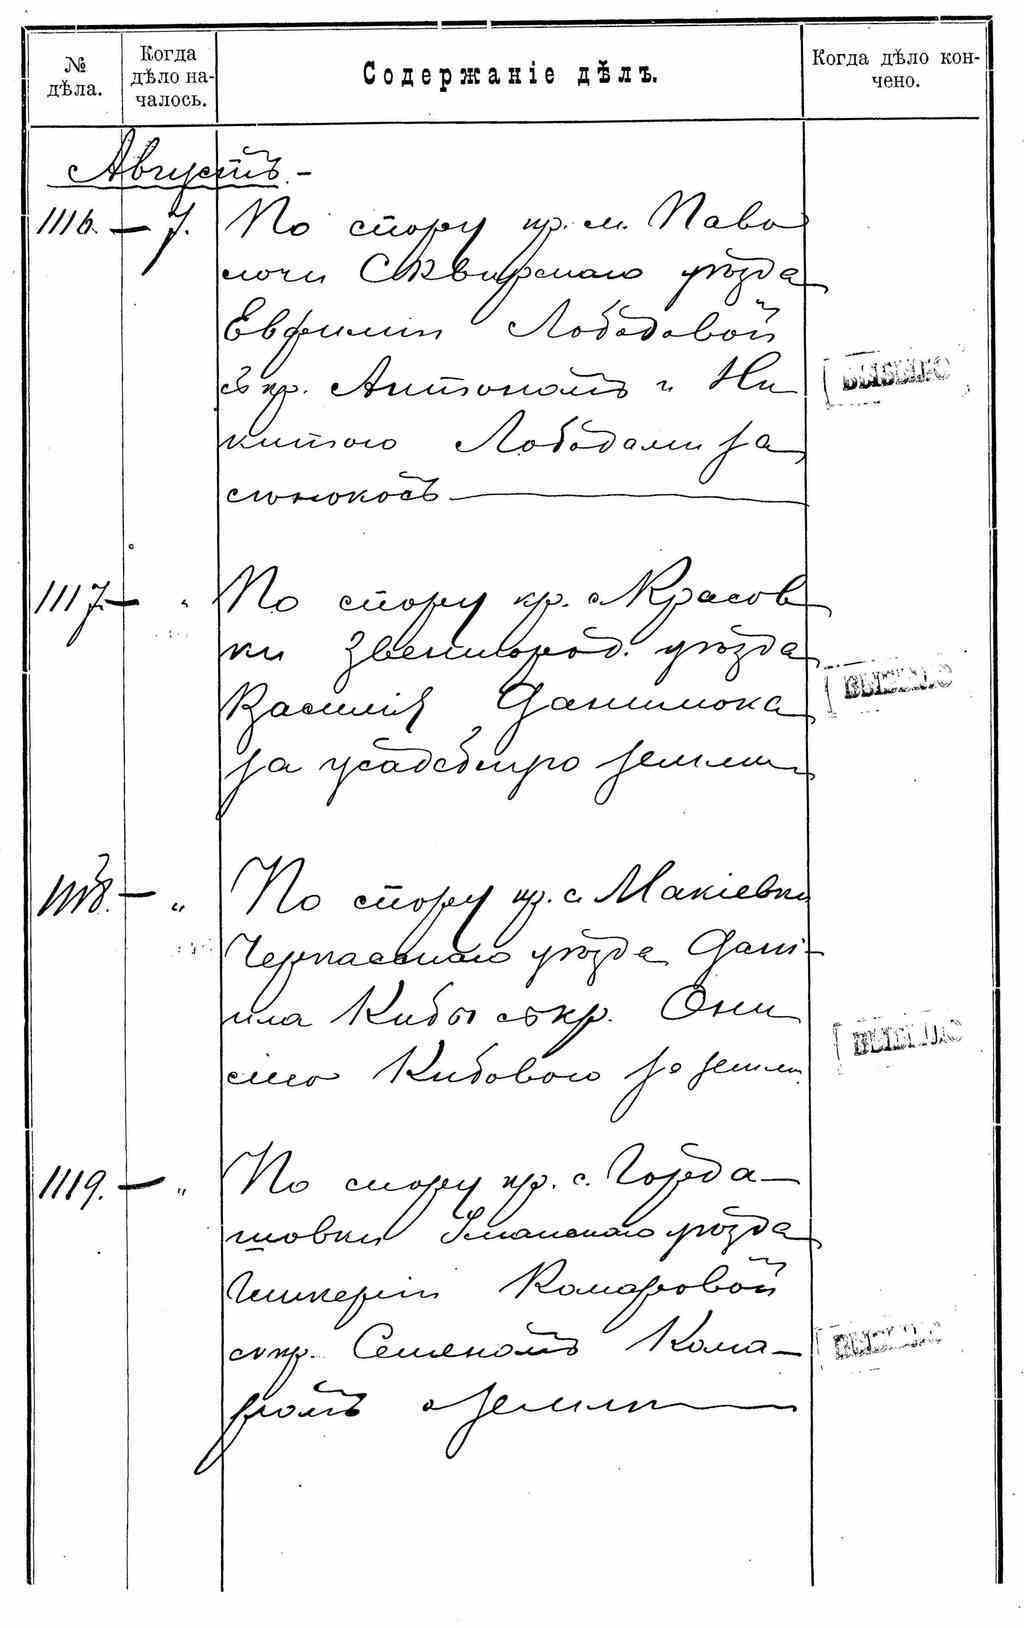 № дѣла.
Когда дѣло на-
чалось.
Содержаніе дѣлъ.
Когда дѣло кон-
чено.
Августъ. -
1116. — 7. По спору кр. м. Паво
лочи Сквирскаго уѣзда
Евфиміи Лободовой
съ кр. Антономъ и Ни
китою Лободами за
сѣнокосъ
1117 — " По спору кр. с. Красов
ки Звенигород. уѣзда
Василія Данилюка
за усадебную землю
1118. — " По спору кр. с. Макіевки
Черкасскаго уѣзда Дані-
ила Кибы съ кр. Они
симо Кибового за землю
1119. — " По спору кр. с. Горда-
шовки Уманскаго уѣзда
Гликеріи Комаровой
съ кр. Семеномъ Кома-
ромъ о землѣ